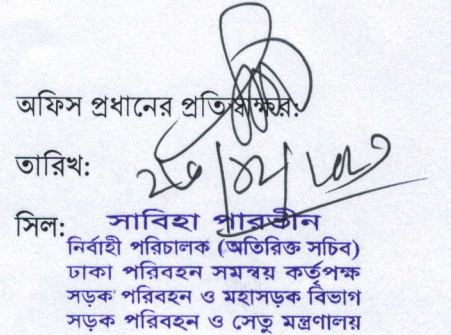 অফিস প্রধানের প্রতিস্বাক্ষর:
তারিখ:
সিল: সাবিহা পারভীন
নির্বাহী পরিচালক (অতিরিক্ত সচিব)
ঢাকা পরিবহন সমন্বয় কর্তৃপক্ষ
সড়ক পরিবহন ও মহাসড়ক বিভাগ
সড়ক পরিবহন ও সেতু মন্ত্রণালয়